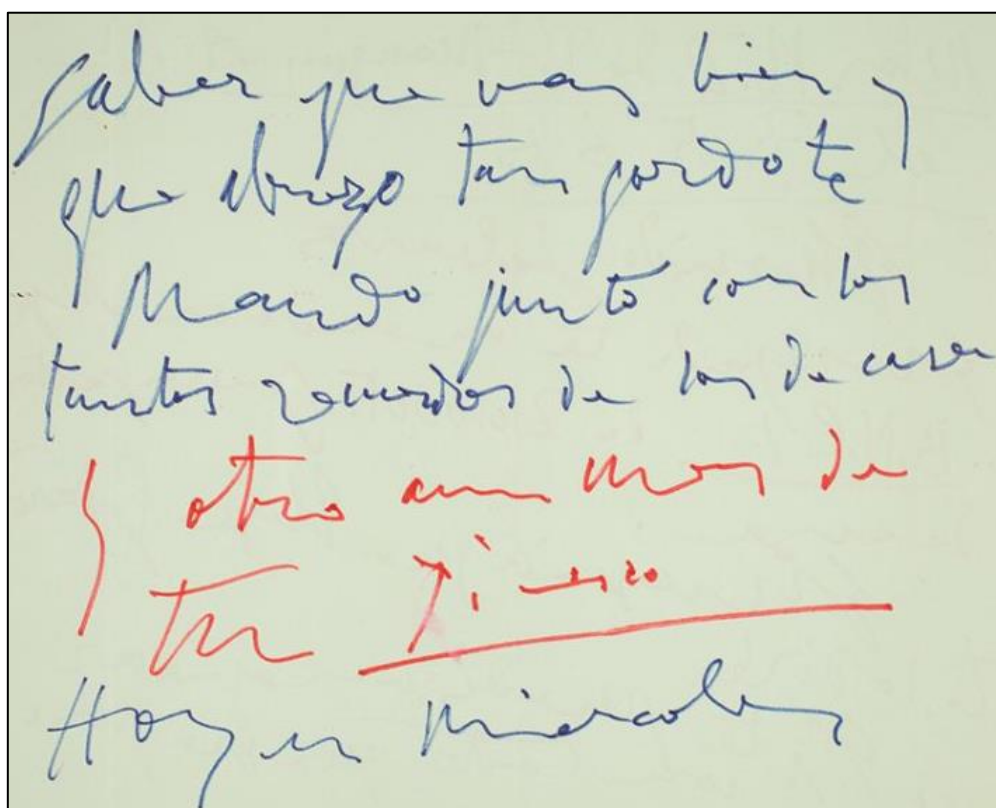 saber que vas bien y
que abrazo tan gordo te
mando junto con los
tantos recuerdos de los de casa
y otro aun mas de
tu Picasso
Hoy es miercoles